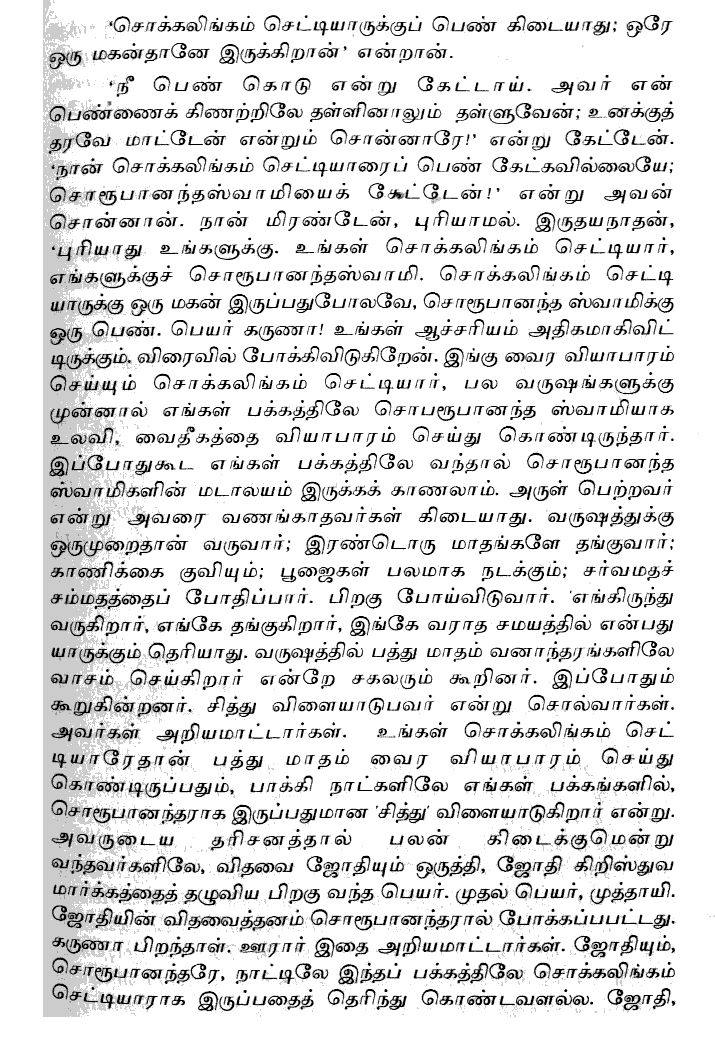 'சொக்கலிங்கம் செட்டியாருக்குப் பெண் கிடையாது; ஒரே
ஒரு மகன்தானே இருக்கிறான்' என்றான்.
'நீ பெண் கொடு என்று கேட்டாய். அவர் என்
பெண்ணைக் கிணற்றிலே தள்ளினாலும் தள்ளுவேன்; உனக்குத்
தரவே மாட்டேன் என்றும் சொன்னாரே!' என்று கேட்டேன்.
'நான் சொக்கலிங்கம் செட்டியாரைப் பெண் கேட்கவில்லையே;
சொரூபானந்தஸ்வாமியைக் கேட்டேன்!' என்று அவன்
சொன்னான். நான் மிரண்டேன், புரியாமல். இருதயநாதன்,
'புரியாது உங்களுக்கு. உங்கள் சொக்கலிங்கம் செட்டியார்,
எங்களுக்குச் சொரூபானந்தஸ்வாமி. சொக்கலிங்கம் செட்டி
யாருக்கு ஒரு மகன் இருப்பதுபோலவே, சொரூபானந்த ஸ்வாமிக்கு
ஒரு பெண். பெயர் கருணா! உங்கள் ஆச்சரியம் அதிகமாகிவிட்
டிருக்கும். விரைவில் போக்கிவிடுகிறேன். இங்கு வைர வியாபாரம்
செய்யும் சொக்கலிங்கம் செட்டியார், பல வருஷங்களுக்கு
முன்னால் எங்கள் பக்கத்திலே சொபரூபானந்த ஸ்வாமியாக
உலவி, வைதீகத்தை வியாபாரம் செய்து கொண்டிருந்தார்.
இப்போதுகூட எங்கள் பக்கத்திலே வந்தால் சொரூபானந்த
ஸ்வாமிகளின் மடாலயம் இருக்கக் காணலாம். அருள் பெற்றவர்
என்று அவரை வணங்காதவர்கள் கிடையாது. வருஷத்துக்கு
ஒருமுறைதான் வருவார்; இரண்டொரு மாதங்களே தங்குவார்;
காணிக்கை குவியும்; பூஜைகள் பலமாக நடக்கும்; சர்வமதச்
சம்மதத்தைப் போதிப்பார். பிறகு போய்விடுவார். 'எங்கிருந்து
வருகிறார், எங்கே தங்குகிறார், இங்கே வராத சமயத்தில் என்பது
யாருக்கும் தெரியாது. வருஷத்தில் பத்து மாதம் வணாந்தரங்களிலே
வாசம் செய்கிறார் என்றே சகலரும் கூறினர். இப்போதும்
கூறுகின்றனர். சித்து விளையாடுபவர் என்று சொல்வார்கள்.
அவர்கள் அறியமாட்டார்கள். உங்கள் சொக்கலிங்கம் செட்
டியாரேதான் பத்து மாதம் வைர வியாபாரம் செய்து
கொண்டிருப்பதும், பாக்கி நாட்களிலே எங்கள் பக்கங்களில்,
சொரூபானந்தராக இருப்பதுமான 'சித்து' விளையாடுகிறார் என்று.
அவருடைய தரிசனத்தால் பலன் கிடைக்குமென்று
வந்தவர்களிலே, விதவை ஜோதியும் ஒருத்தி, ஜோதி கிறிஸ்துவ
மார்க்கத்தைத் தழுவிய பிறகு வந்த பெயர். முதல் பெயர், முத்தாயி.
ஜோதியின் விதவைத்தனம் சொரூபானந்தரால் போக்கப்பபட்டது.
கருணா பிறந்தாள். ஊரார் இதை அறியமாட்டார்கள். ஜோதியும்,
சொரூபானந்தரே, நாட்டிலே இந்தப் பக்கத்திலே சொக்கலிங்கம்
செட்டியாராக இருப்பதைத் தெரிந்து கொண்டவளல்ல. ஜோதி,